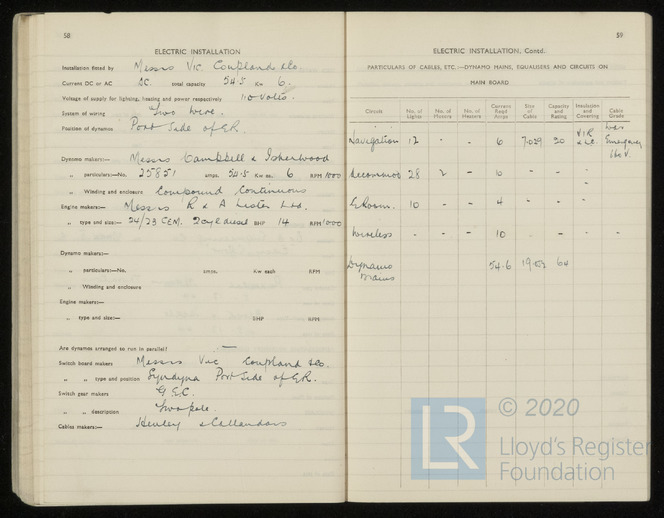 58
ELECTRIC INSTALLATION
Installation fitted by Messrs Vic. Coupland &Co.
Current DC or AC DC. total capacity 54.5 Kw 6.
Voltage of supply for lighting, heating and power respectively 110 Volts.
System of wiring Two Wire.
Position of dynamos Port Side of ER.
Dynamo makers:— Messrs Campbell & Isherwood
„ particulars:—No. 25851 amps. 54.5 Kw ea. 6 RPM 1000
„ Winding and enclosure Compound Continuous
Engine makers:— Messrs R & A Lister Ltd.
„ type and size:— 24/23 CEM. 2cyl diesel BHP 14 RPM 1000
Dynamo makers:—
„ particulars:—No. amps. Kw each RPM
„ Winding and enclosure
Engine makers:—
„ type and size:— BHP RPM
Are dynamos arranged to run in parallel? —
Switch board makers Messrs Vic Coupland &Co.
„ „ type and position Port Side of ER.
Switch gear makers G.E.C.
„ „ description Two pole.
Cables makers:— Henley & Callendars
59
ELECTRIC INSTALLATION, Contd.
PARTICULARS OF CABLES, ETC.:—DYNAMO MAINS, EQUALISERS AND CIRCUITS ON
MAIN BOARD
Circuits No. of Lights No. of Motors No. of Heaters Current Reqd Amps Size of Cable Capacity and Rating Insulation and Covering Cable Grade
Navigation 12 - - 6 7.029 20 VIR & LC. Emergency
28 2 - 6 - - -
E Room. 10 - - 4 - - -
Wireless - - - 10 - - -
Dynamo Mains 54.6 64
© 2020
LR
Lloyd's Register
Foundation